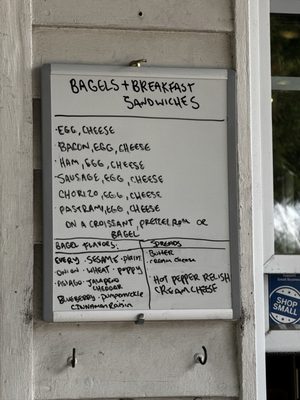 BAGELS + BREAKFAST
SANDWICHES
·EGG, CHEESE
·BACON, EGG, CHEESE
·HAM, EGG, CHEESE
·SAUSAGE, EGG, CHEESE
CHORIZO, EGG, CHEESE
·PASTRAMI, EGG, CHEESE
ON A CROISSANT, PRETZEL ROLL OR
BAGEL
BAGEL FLAVORS:
EVERY· SESAME· PLAIN
ONION · WHEAT · POPPY
ASIAGO · JALAPENO
CHEDDAR
BLUEBERRY · PUMPERNICKLE
CINNAMON RAISIN
SPREADS
·BUTTER
·CREAM CHEESE
HOT PEPPER RELISH
CREAM CHEESE
SHOP
SMALL